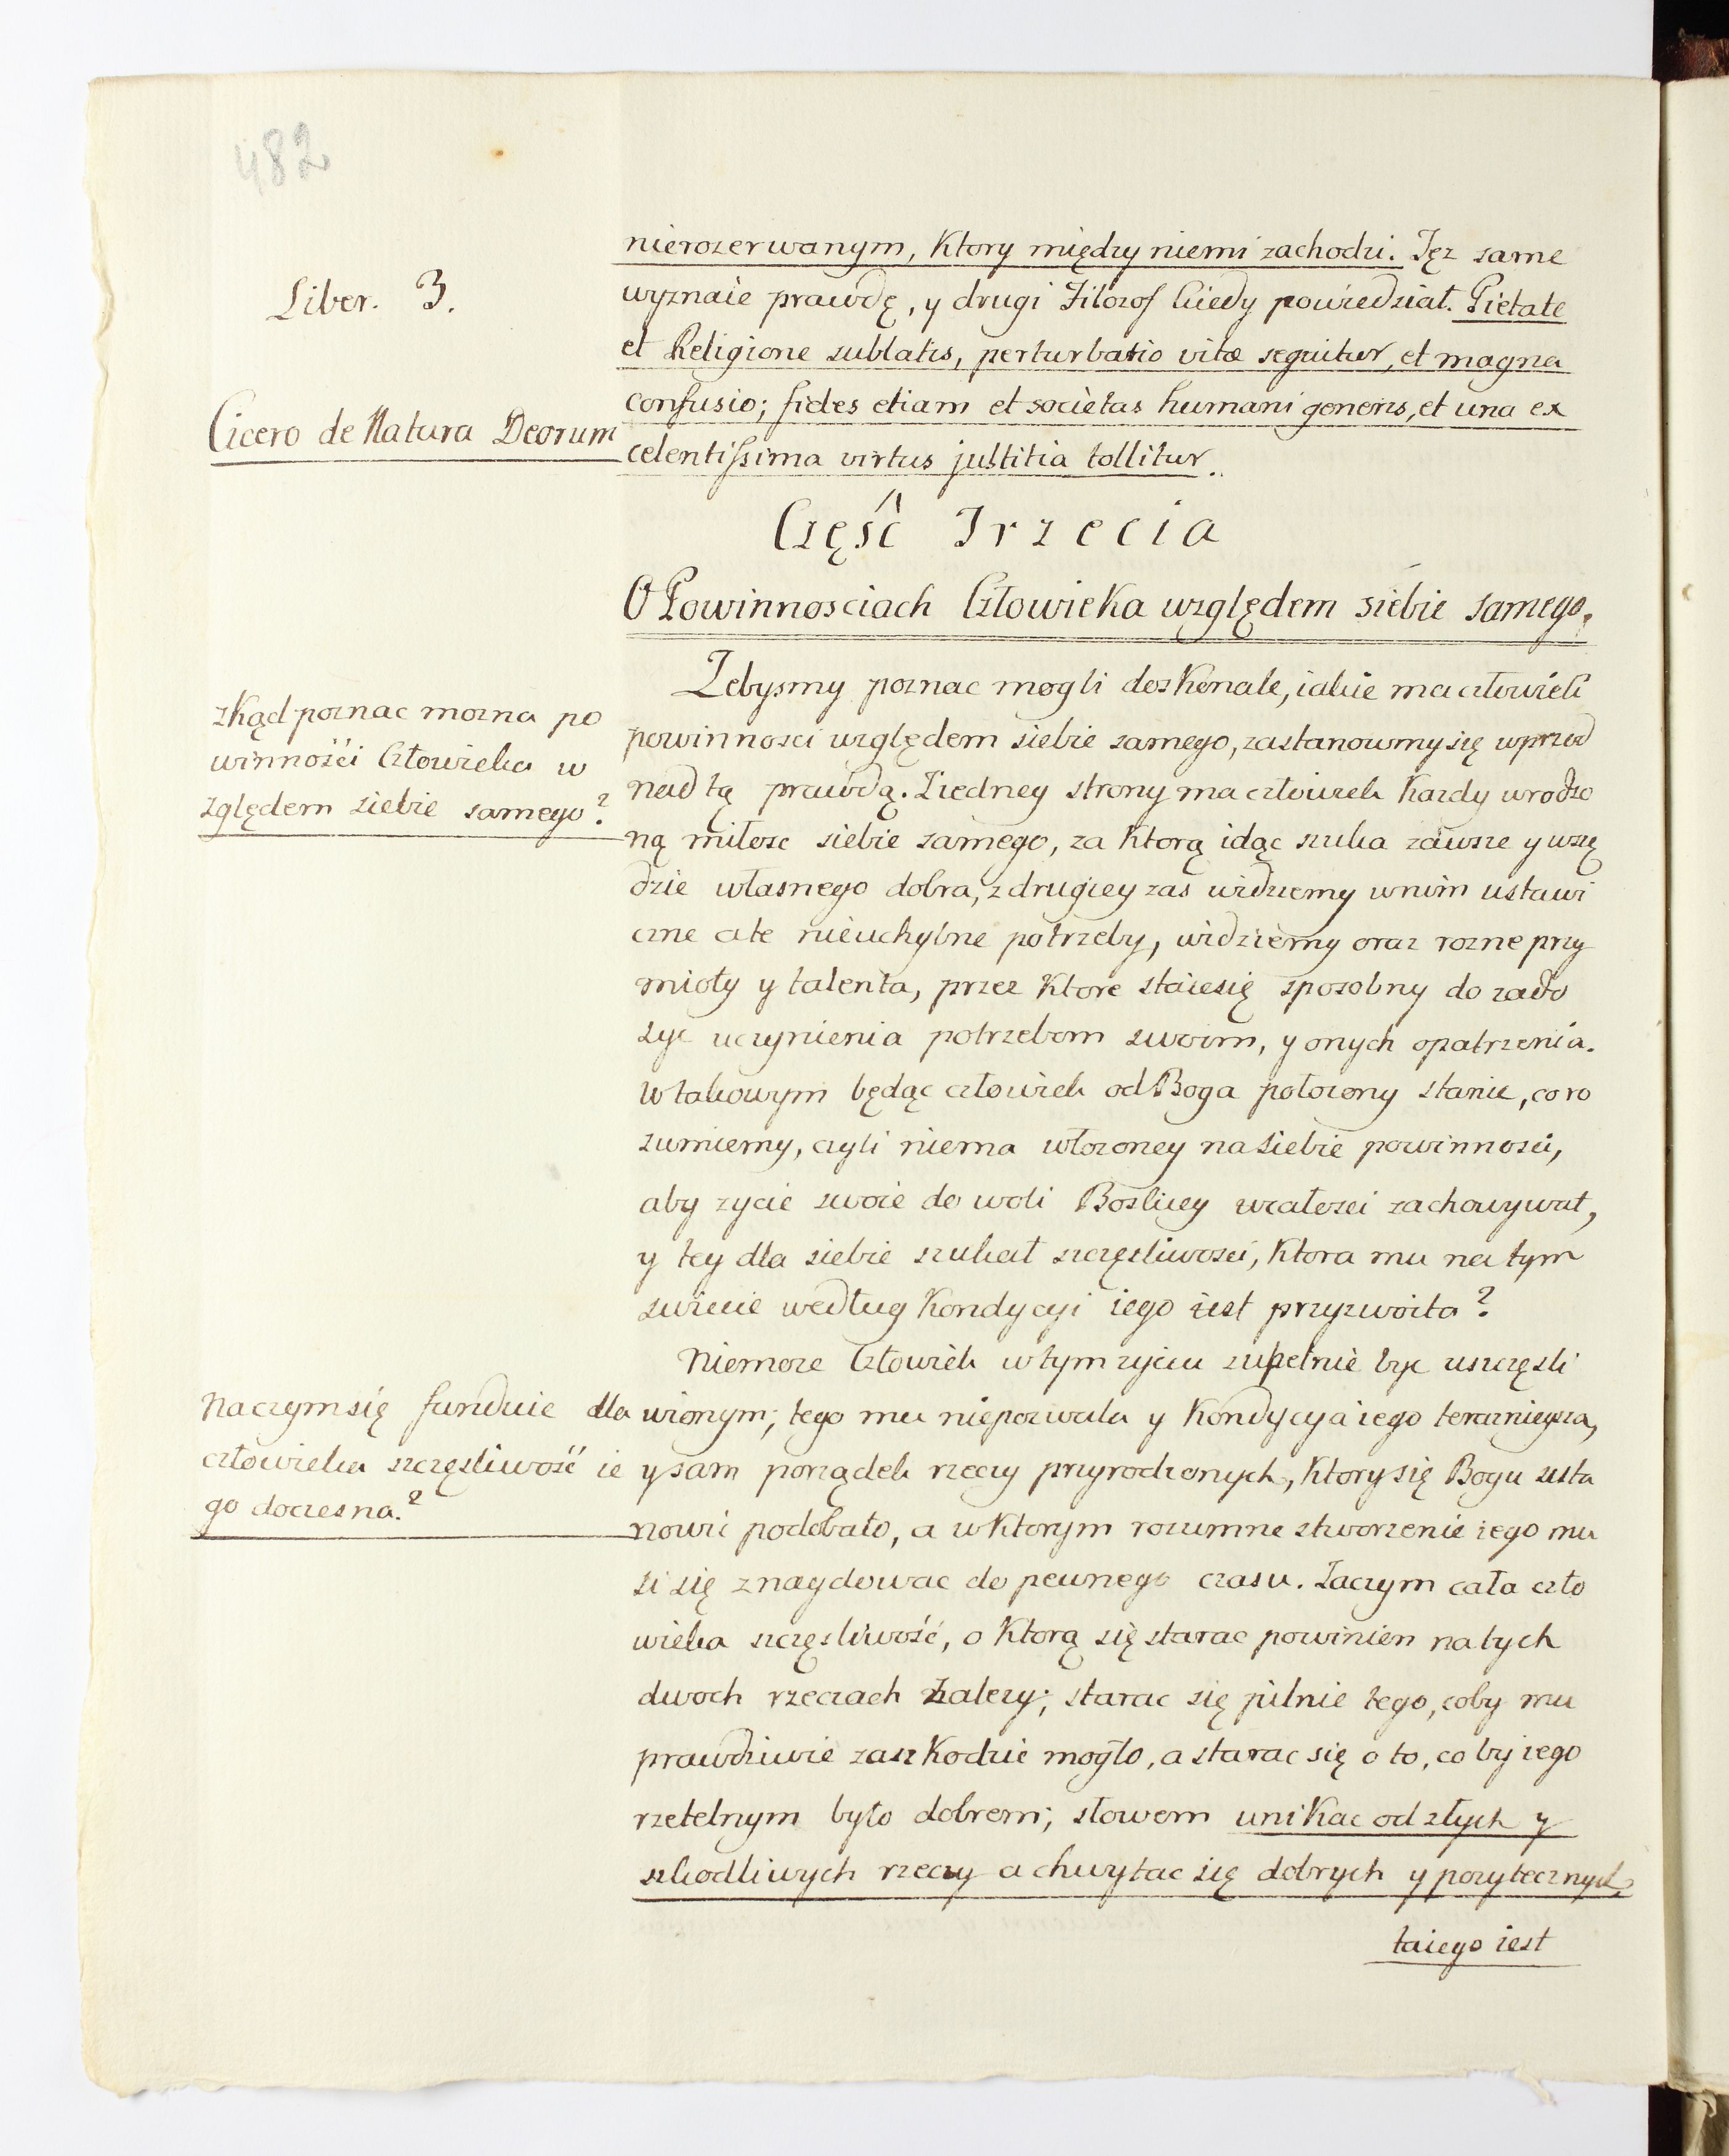 482
nierozerwanym, Ktory między niemi zachodzi. Tęz same
Liber. 3.
wyznaie prawdę, y drugi Filozof kiedy powiedział. Pietate
et Religione sublatis, perturbatio vitæ sequitur, et magna
confusio; fides etiam et societas humani generis, et una ex
Cicero de Natura Deorum
celentissima virtus justitia tollitur.
Część Trzecia
O Powinnosciach Człowieka względem siebie samego.
Zebysmy poznac mogli doskonale, iakie ma człowiek
zkąd poznac mozna po
winności Człowieka w
zględem siebie samego?
powinnosci względem siebie samego, zastanowmy się wprzod
nad tą prawdą. Ziedney strony ma człowiek Kazdy wrodzo
ną miłosc siebie samego, za Ktorą idąc szuka zawsze y wszę
dzie własnego dobra, z drugiey zas widziemy wnim ustawi
czne ale nieuchylne potrzeby, widziemy oraz rozne przy
mioty y talenta, przez Ktore staiesię sposobny do zado
syc uczynienia potrzebom swoim, y onych opatrzenia.
W takowym będąc człowiek od Boga połozony stanie, co ro
zumiemy, czyli niema włozoney na siebie powinnosci,
aby zycie swoie do woli Boskiey wcałosci zachowywał,
y tey dla siebie szukał szczęsliwosci, Ktora mu na tym
swiecie według Kondycyi iego iest przyzwoita?
Niemoze Człowiek wtym zyciu zupełnie byc uszczęsli
Naczym się funduie dla
człowieka szczęsliwość ie
go doczesna?
wionym; tego mu niepozwala y Kondycya iego terazniejsza,
y sam porządek rzeczy przyrodzonych, Ktory się Bogu usta
nowić podobało, a wKtorym rozumne stworzenie iego mu
si się znaydowac do pewnego czasu. Zaczym cała czło
wieka szczęsliwość, o Ktorą się starac powinien na tych
dwoch rzeczach zalezy; starac się pilnie tego, coby mu
prawdziwie zaszkodzic mogło, a starac się o to, co by iego
rzetelnym było dobrem; słowem uniKac od złych y
szkodliwych rzeczy a chwytac się dobrych y pozytecznych,
taiego iest